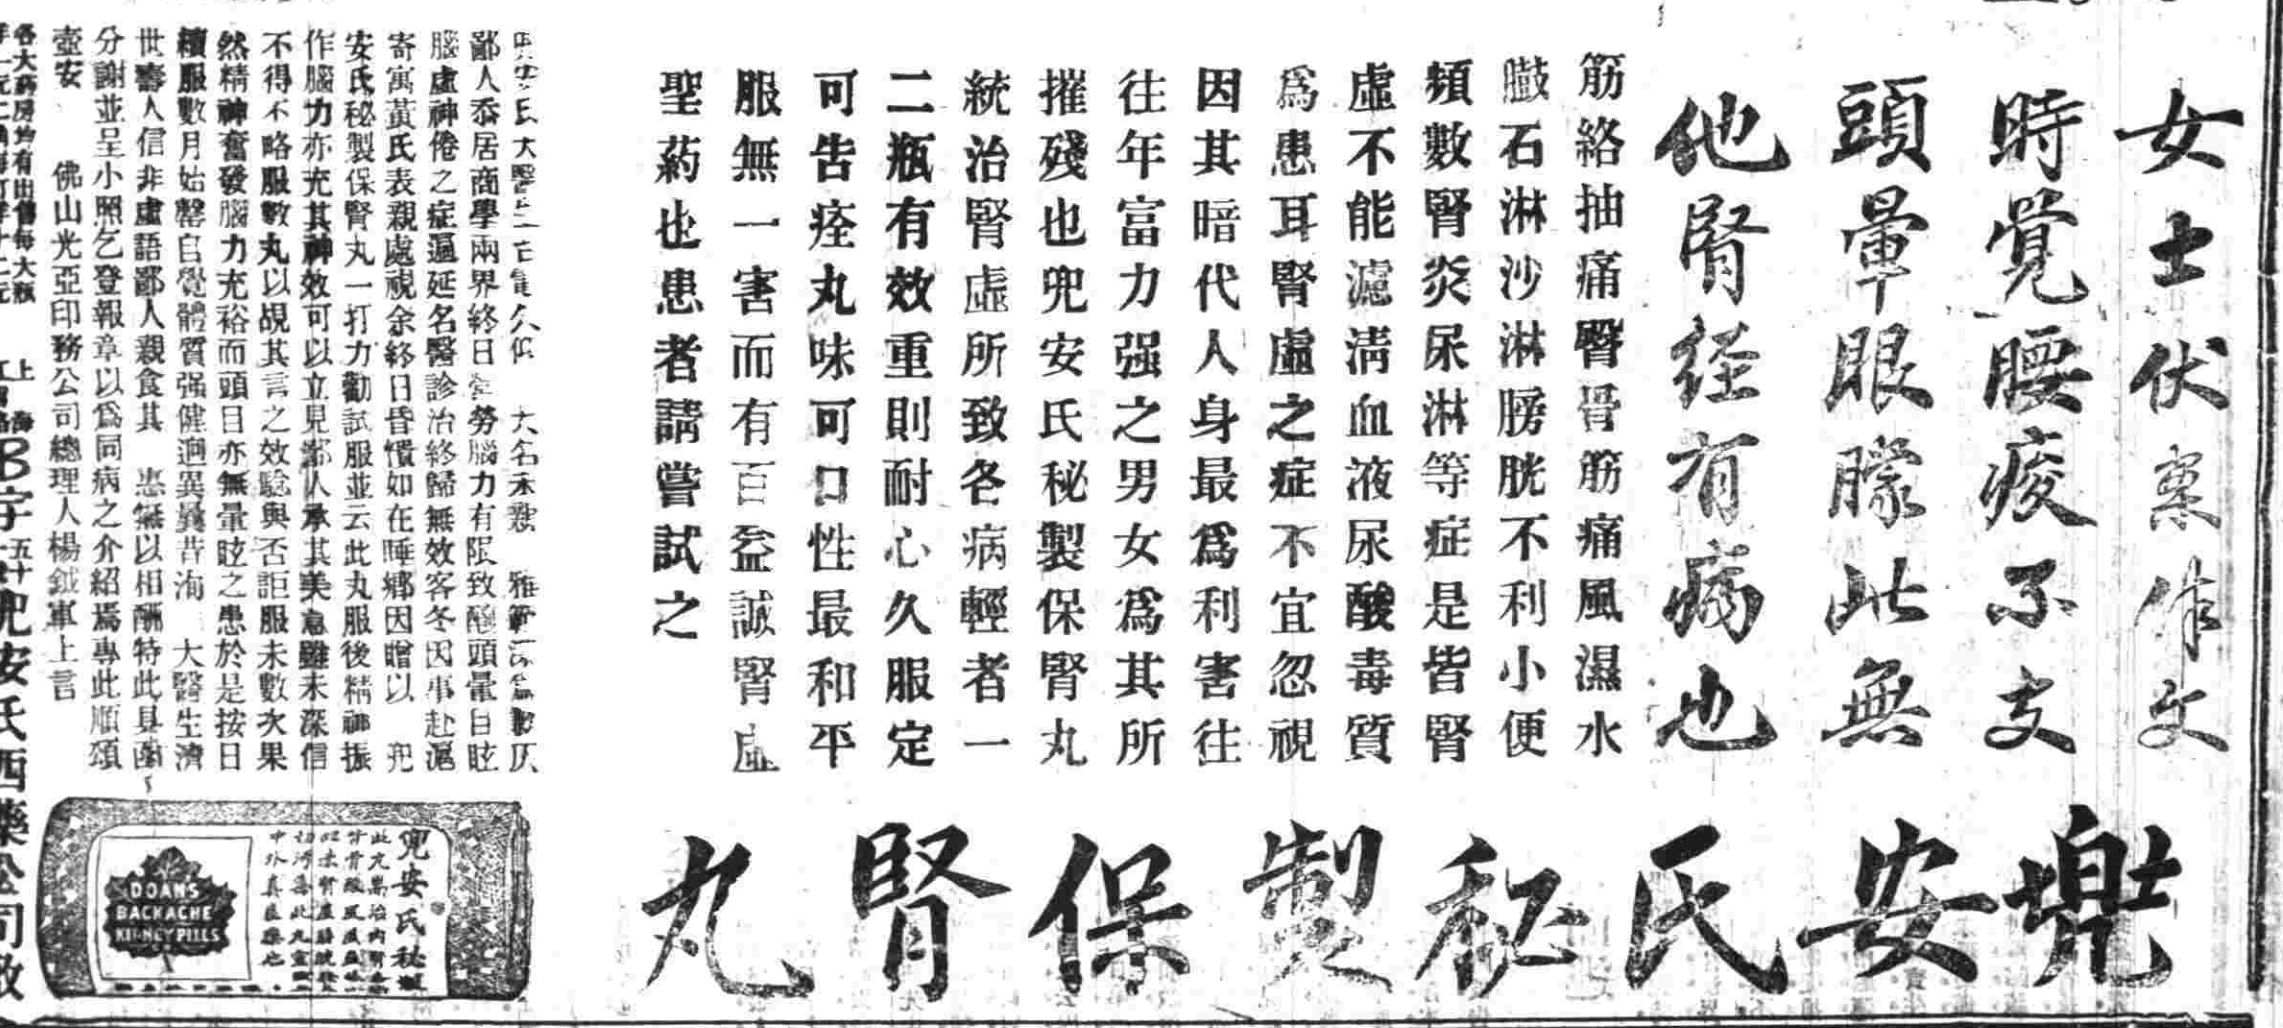 女士伏案作文
時覚腰痠不支
頭暈眼朦此無
他腎経有病也
筋絡抽痛臀骨筋痛風濕水
臌石淋沙淋膀胱不利小便
頻數腎炎尿淋等症是皆腎
虛不能濾淸血液尿酸毒質
爲患耳腎虛之症不宜忽視
因其暗代人身最爲利害往
往年富力强之男女爲其所
摧殘也兜安氏秘製保腎丸
統治腎虛所致各病輕者一
二瓶有效重則耐心久服定
可告痊丸味可口性最和平
服無一害而有百益誠腎虛
聖葯也患者請嘗試之
兜安氏秘製保腎丸
大名
鄙人忝居商學兩界終日勞腦力有限致頭暈目眩
腦虛神倦之症遍延名醫診治終歸無效客冬因事赴滬
寄寓黃氏表親處視余終日昏憒如在睡鄕因贈以 兜
安氏秘製保腎丸一打力勸試服並云此丸服後精神振
作腦力亦充其神效可以立見鄙人承其美意雖未深信
不得不略服數丸以覘其言之效驗與否詎服未數次果
然精神奮發腦力充裕而頭目亦無暈眩之患於是按日
續服數月始罄自覺體質强健迥異曩昔洵 大醫生濟
世壽人信非虛語鄙人親食其 恵無以相酬特此具函
分謝並呈小照乞登報章以爲同病之介紹焉專此順頌
壺安 佛山光亞印務公司總理人楊鉞軍上言
兜安氏秘製
DOANS
BACKACHE
KIDNEY PILLS
各大葯房均有出售每大瓶
上海
B字
五十
兜安氏西藥公司啟